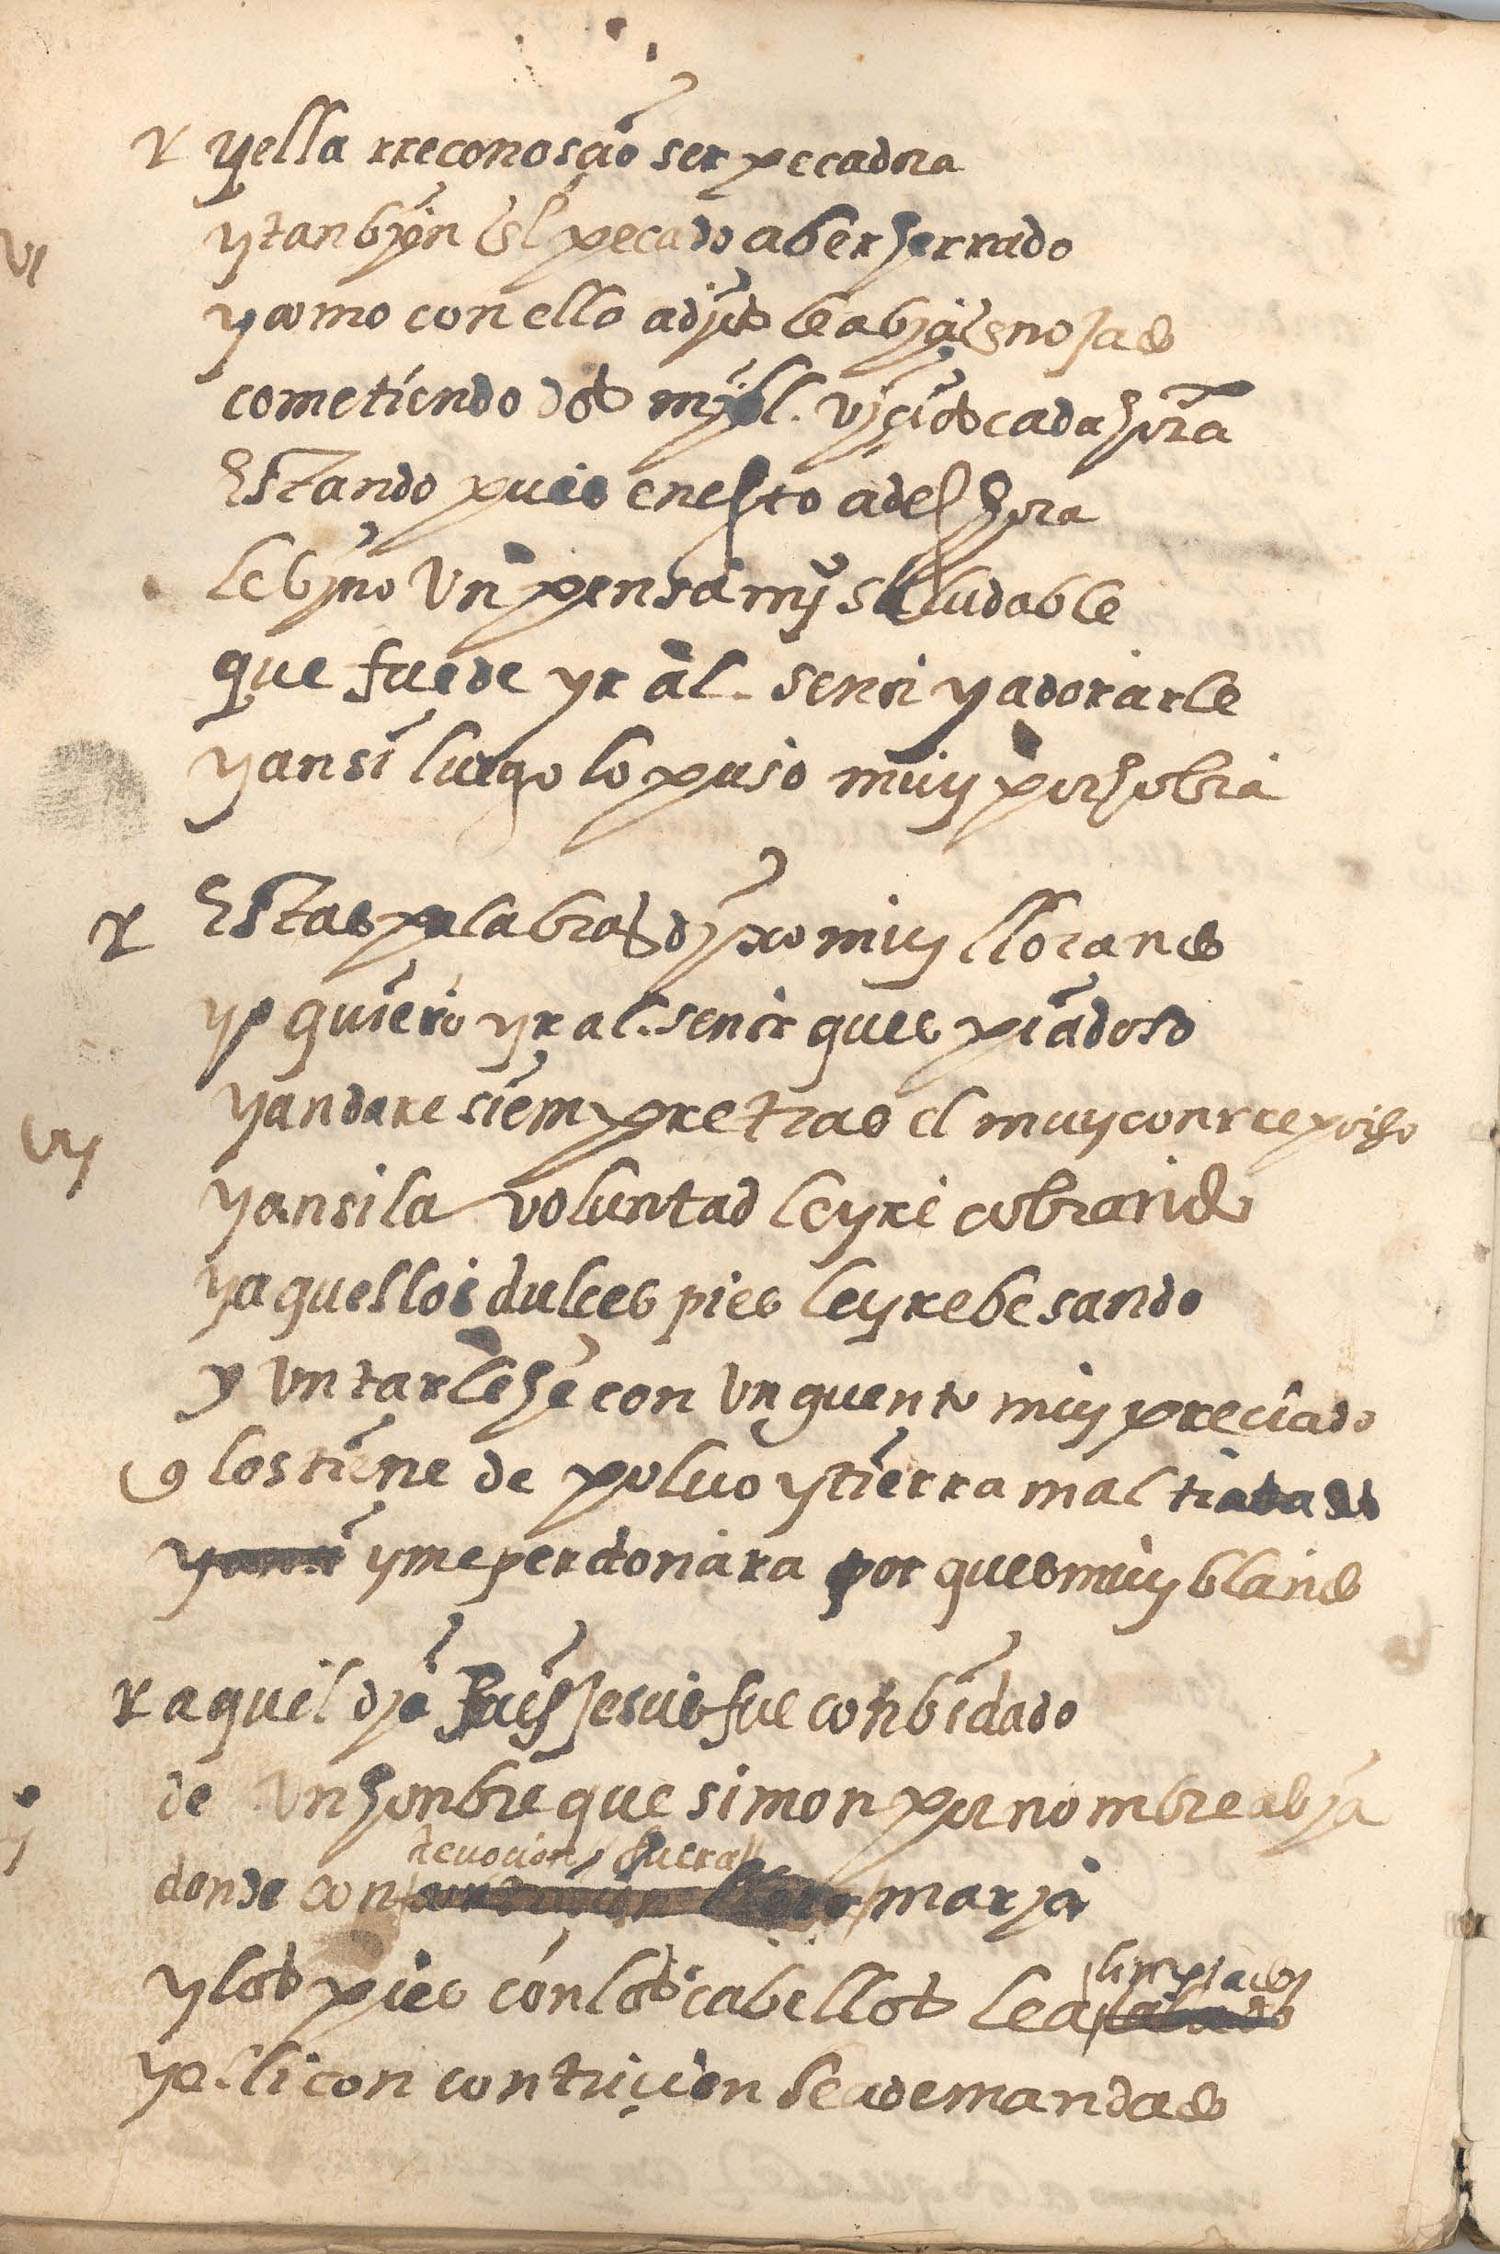 yella rreconosçio ser pecadora
vi
ytanbyen el pecado aber herrado
y como con ello a djos le abja enojado
cometiendo dos myll. vjçios cada hora
Estando pues enesto a deshora
le bjno vn pensamyº saludable
que fue de yr al. señor y adorarle
yansi luego lo puso muy por hobra
Estas palabras dyxo muy llorando
yo quiero yr al. señor ques piadoso
yandare siempre tras el muy con rreposo
vij
yansi la voluntad le yre cobrando
yaquellos dulces pies le yre besando
y vntarlehe con vnguento muy preciado
q los tiene de polvo ytierra mal tratados
yansi ymeperdonara por ques muy blando
aquel dja pues Jesus fue conbidado
de vn honbre que simon por nombre abja
devocion fuera
donde con marja
limpiados
ylos pies con los cabellos lea
yalli con contriçion lea demandado